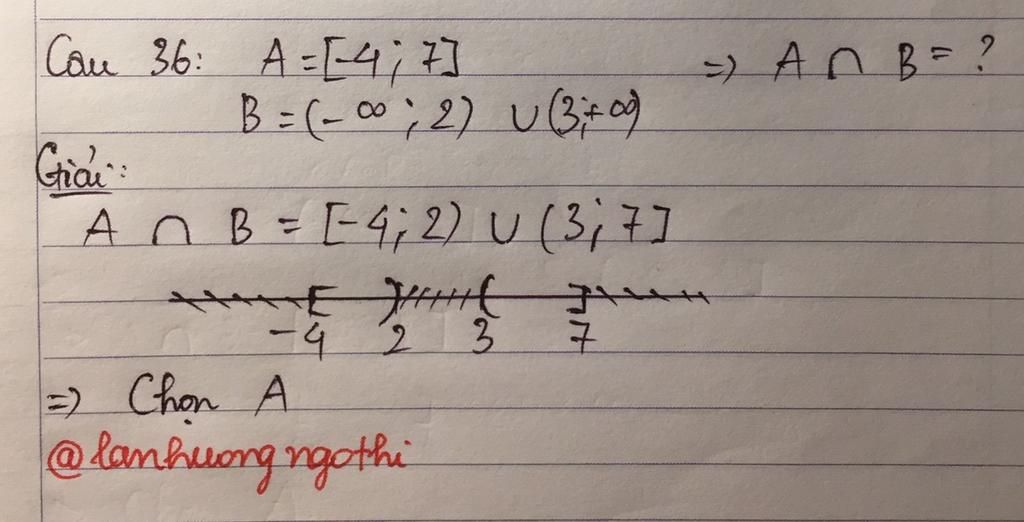 Câu 36: A = [-4; 7] => A ∩ B = ?
B = (-∞; 2) ∪ (3; +∞)
Giải:
A ∩ B = [-4; 2) ∪ (3; 7]
-4 2 3 7
=> Chọn A
@lanhuongngothi